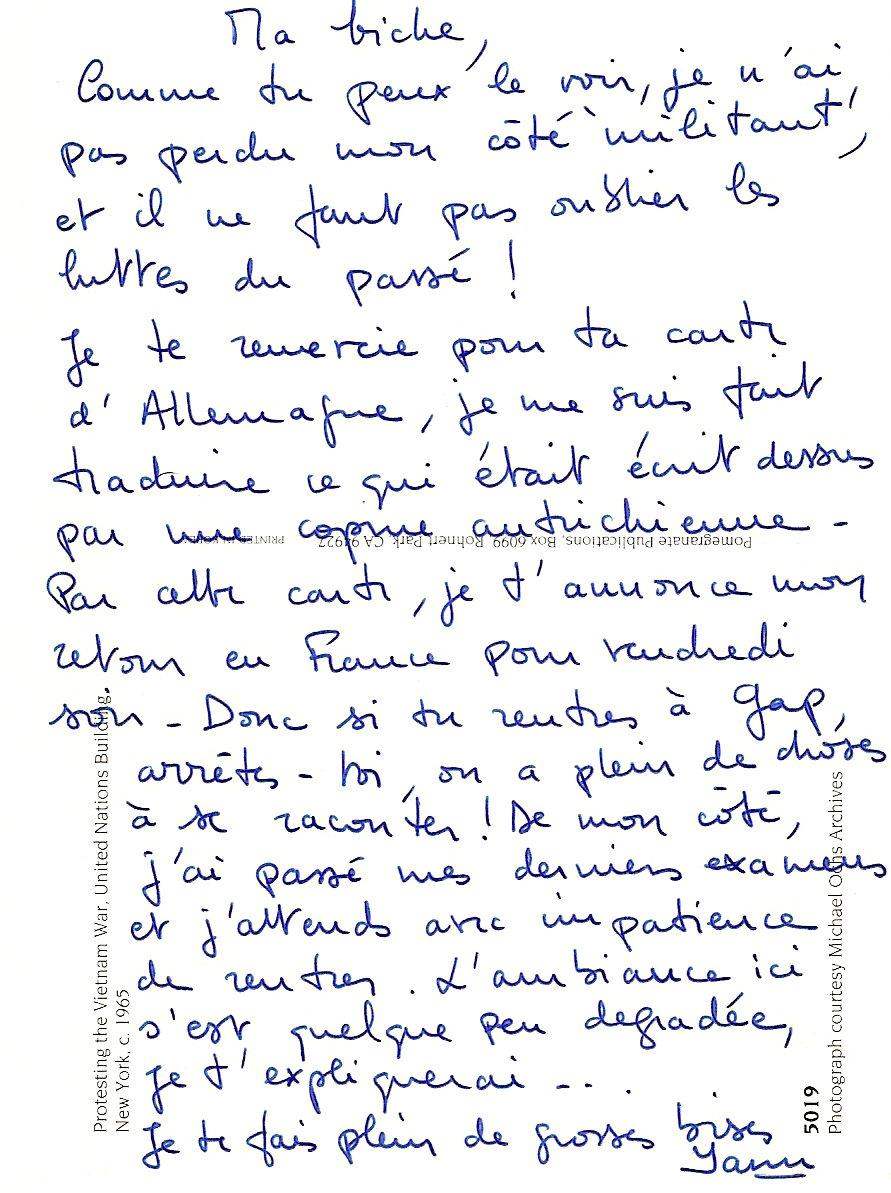 Ma biche,
Comme tu peux le voir, je n'ai
pas perdu mon côté "militant",
et il ne faut pas oublier les
luttes du passé !
Je te remercie pour ta carte
d'Allemagne, je me suis fait
traduire ce qui était écrit dessus
par une copine autrichienne -
Par cette carte, je t'annonce mon
retour en France pour vendredi
soir - Donc si tu rentres à Gap,
arrêtes-toi, on a plein de choses
à se raconter ! De mon côté,
j'ai passé mes derniers examens
et j'attends avec impatience
de rentrer. L'ambiance ici
s'est quelque peu degradée,
je t'expliquerai ...
Je te fais plein de grosses bises
Yann
Pomegranate Publications, Box 6099, Rohnert Park, CA 94927
PRINTED IN KOREA
Protesting the Vietnam War, United Nations Building,
New York, c. 1965
5019
Photograph courtesy Michael Ochs Archives